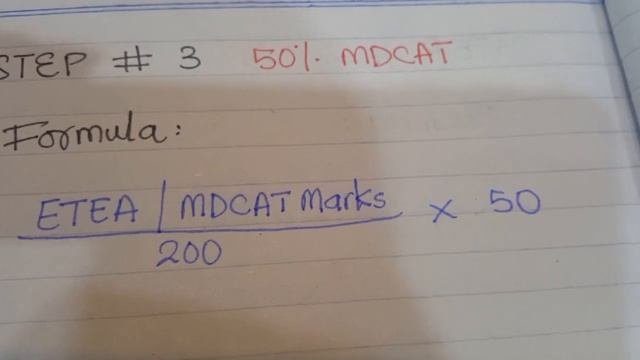 STEP # 3 50%. MDCAT
Formula:
ETEA | MDCAT Marks × 50
200